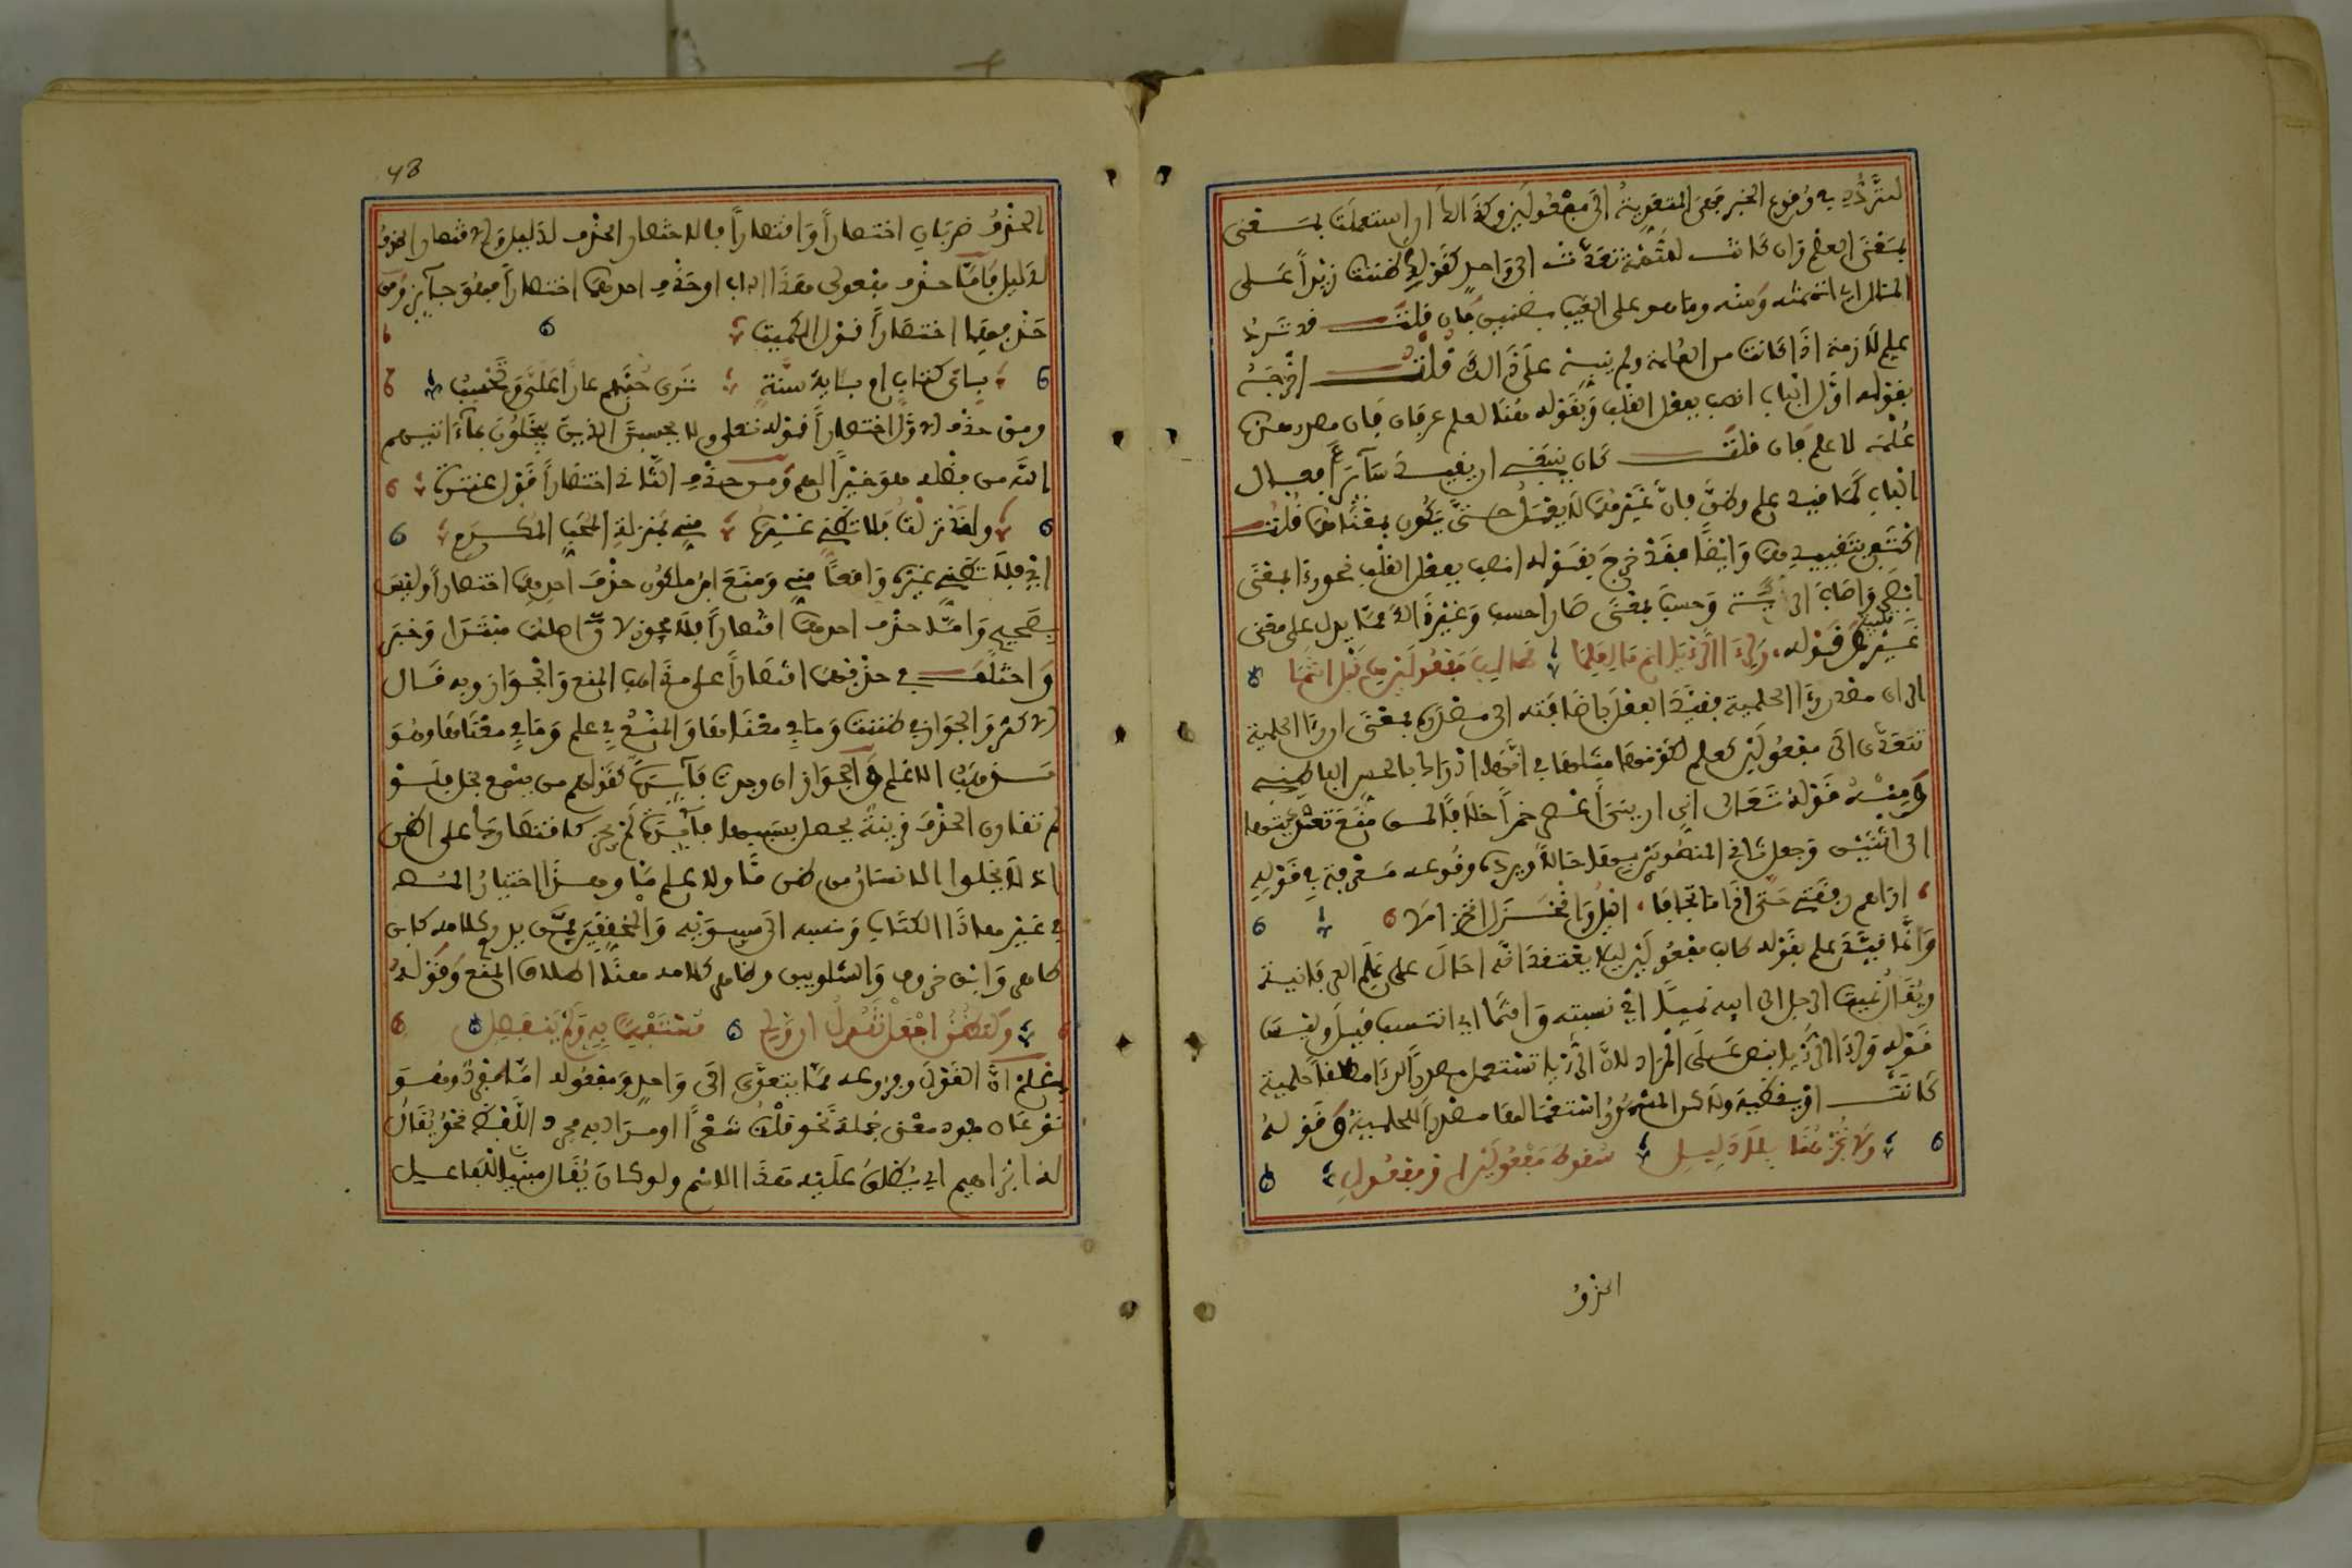 لتردد في وقوع الخبر فهي المتعدية الى مفعولين وكذالك ان استعملت بمعنى
بمعنى العلم وان كانت للتهمة تعدت الى واحد كقولك ظننت زيدا على
المال اي اتهمته ومنه وما هو على الغيب بظنين فان قلت قد ترد
علم لازمة اذا كانت من العلمة ولم ينبه على ذالك قلت اخرجه
بقوله اول الباب انصب بفعل القلب وبقوله هنا لعلم عرفان فان مصدر هذه
علمه لا علم فان قلت كان ينبغي ان يقيد سائر افعال
الباب كما قيد علم وظن فان غيرهما لا يعمل حتى يكون بمعناهما قلت
اكتفى بتقييدهما وايضا فقد خرج بقوله انصب بفعل القلب نحو رءا بمعنى
ابصر واصاب الرئة وحسب بمعنى صار احسب وغير ذالك مما يدل على معنى
غير قلبي قوله، ولرءا الرؤيا انم ما لعلما طالب مفعولين من قبل انتمى
اي ان مصدر رءا الحلمية فقيد الفعل باضافته الى مصدره بمعنى ان رءا الحلمية
تتعدى الى مفعولين كعلم لكونها مثلها في انها ادراك بالحس الباطن
ومنه قوله تعالى اني اراني اعصر خمرا خلافا لمن منع تعديتها
الى اثنين وجعل ثاني المنصوبين حالا ويرده وقوعه معرفة في قوله
اراهم رفقتي حتى اذا ما تجافى، الليل وانخزل انخزالا
وانما قيد علم بقوله طالب مفعولين ليلا يعتقد انه احال على علم العرفانية
ويقال نميت الرجل الى ابيه نميا اي نسبته وانتمى اي انتسب قيل وليس
قوله ولرءا الرؤيا بنص على المراد لان الرؤيا تستعمل مصدرا لرءا مطلقا حلمية
كانت او يقظية ولاكن المشهور استعمالها مصدرا للحلمية وقوله
ولا تجز هنا بلا دليل سقوط مفعولين او مفعول
الحذف
43
الحذف ضربان اختصارا واقتصارا فالاختصار الحذف لدليل والاقتصار الحذف
لا لدليل فاما حذف مفعولي هذا الباب او حذف احدهما اختصارا فهو جايز ومن
حذفهما اختصارا قول الكميت
باي كتاب ام باية سنة ترى حبهم عارا علي وتحسب
ومن حذف الاول اختصارا قوله تعلى ولا يحسبن الذين يبخلون بما اتيهم
الله من فضله هو خيرا لهم ومن حذف الثاني اختصارا قول عنترة
ولقد نزلت فلا تظني غيره مني بمنزلة المحب المكرم
اي فلا تظني غيره واقعا مني ومنع ابن ملكون حذف احدهما اختصارا وليس
بصحيح واما حذف احدهما اقتصارا فلا يجوز لان اصلهما مبتدا وخبر
واختلف في حذفهما اقتصارا على مذاهب المنع والجواز وبه قال
الاكثر والجواز في ظننت وما في معناها والمنع في علم وما في معناها وهو
مذهب الاعلم والجواز ان وجدت فايدة كقولهم من يسمع يخل فلو
لم تقارن الحذف قرينة يحصل بسببها فايدة لم يجز كاقتصارك على اظن
اذ لا يخلوا الانسان من ظن ما ولا علم ما وهذا اختيار المص
في غير هاذا الكتاب ونسبه الى سيبويه والمحققين ممن يدل كلامه كابن
طاهر وابن خروف والشلوبين وظاهر كلامه هنا اطلاق المنع وقوله
وكتظن اجعل تقول ان ولي مستفهما به ولم ينفصل
اعلم ان القول وفروعه مما يتعدى الى واحد ومفعوله اما مفرد وهو
نوعان مفرد معنى جملة نحو قلت شعرا او مراد به مجرد اللفظ نحو يقال
له ابراهيم اي يطلق عليه هذا الاسم ولو كان يقال مبنيا للفاعل